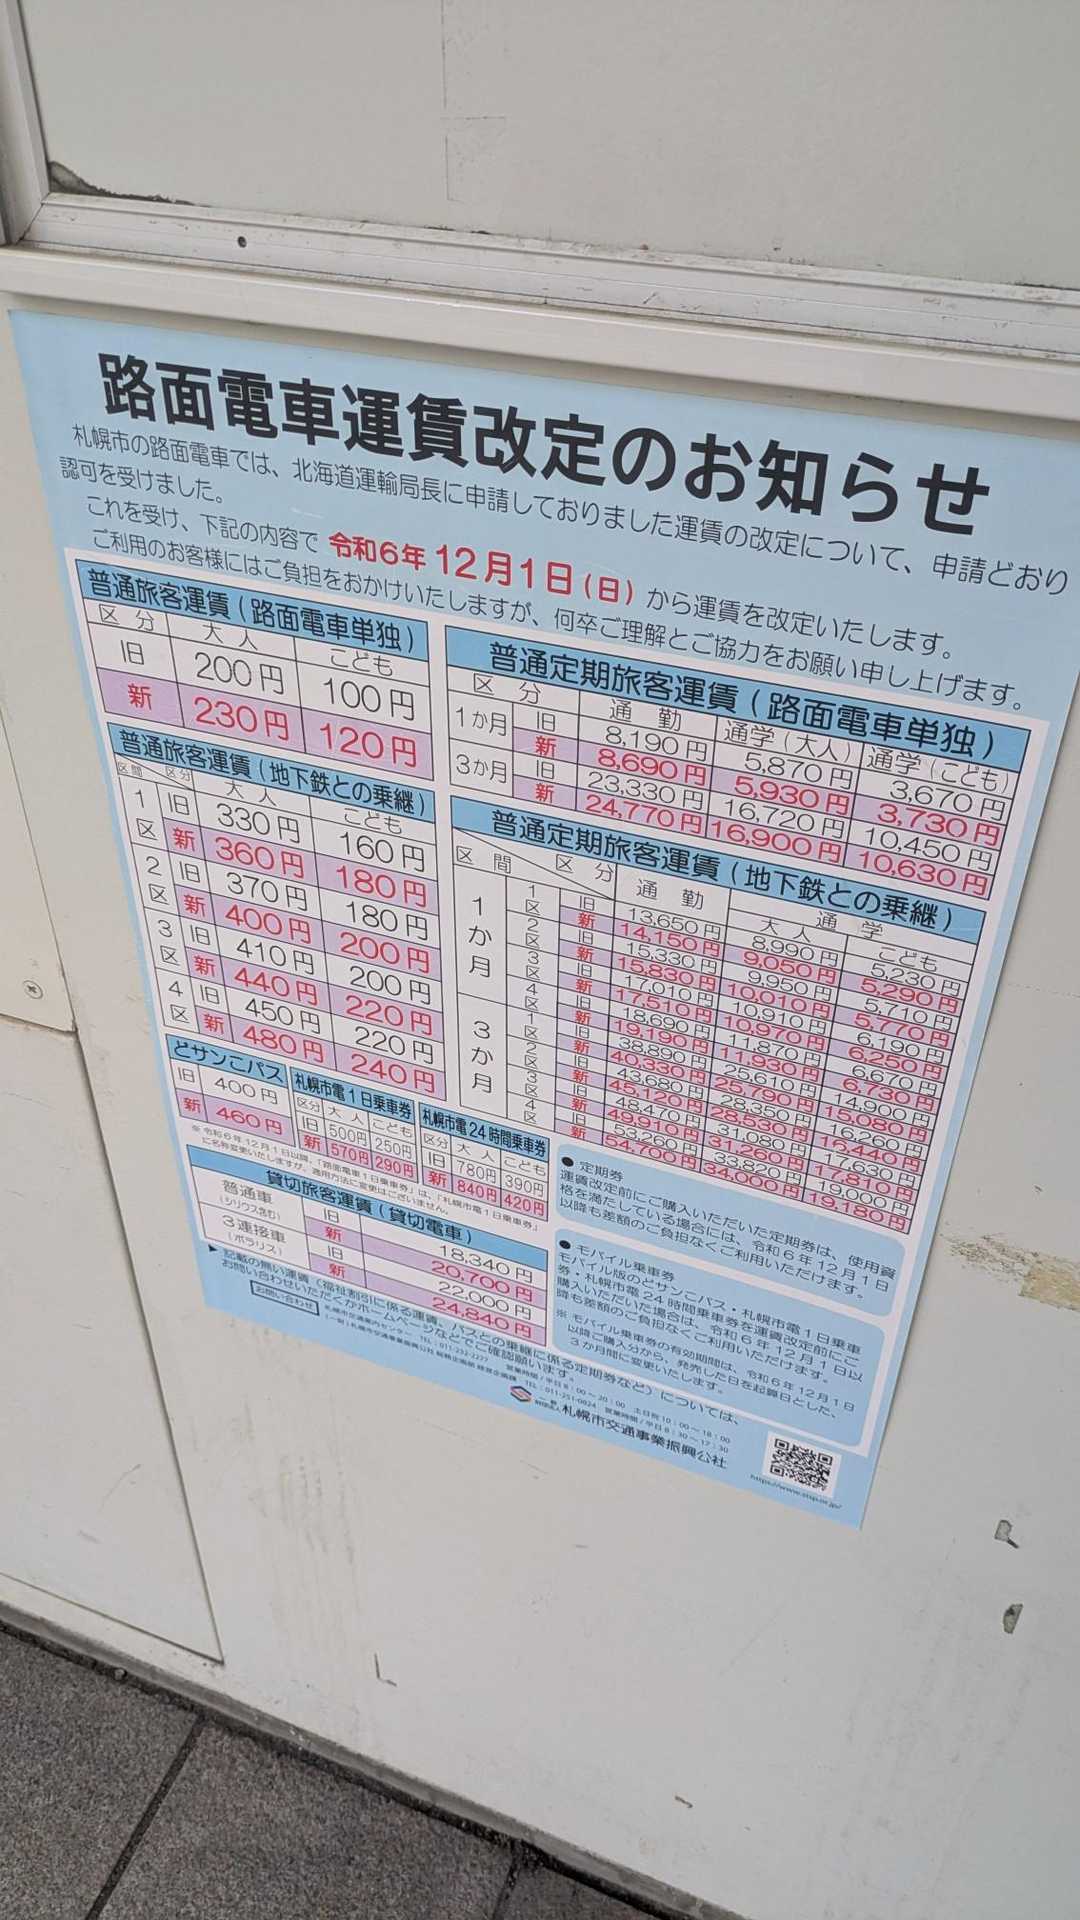 路面電車運賃改定のお知らせ
札幌市の路面電車では、北海道運輸局長に申請しておりました運賃の改定について、申請どおり
認可を受けました。
これを受け、下記の内容で 令和6年 12月1日(日) から運賃を改定いたします。
ご利用のお客様にはご負担をおかけいたしますが、何卒ご理解とご協力をお願い申し上げます。
普通旅客運賃(路面電車単独)
区分 大人 こども
旧 200円 100円
新 230円 120円
普通旅客運賃(地下鉄との乗継)
区間 区分 大人 こども
1区 旧 330円 160円
新 360円 180円
2区 旧 370円 180円
新 400円 200円
3区 旧 410円 200円
新 440円 220円
4区 旧 450円 220円
新 480円 240円
どサンこパス
旧 400円
新 460円
札幌市電1日乗車券
区分 大人 こども
旧 500円 250円
新 570円 290円
札幌市電24時間乗車券
区分 大人 こども
旧 780円 390円
新 840円 420円
※ 令和6年12月1日以降、「路面電車1日乗車券」は、「札幌市電1日乗車券」
に名称変更いたしますが、適用方法に変更はございません。
貸切旅客運賃(貸切電車)
普通車 (シリウス含む) 旧 18,340円
新 20,700円
3連接車 (ポラリス) 旧 22,000円
新 24,840円
▶ 記載の無い運賃(福祉割引に係る運賃、バスとの乗継に係る定期券など)については、
お問い合わせいただくかホームページなどでご確認願います。
普通定期旅客運賃(路面電車単独)
区分 通勤 通学(大人) 通学(こども)
1か月 旧 8,190円 5,870円 3,670円
新 8,690円 5,930円 3,730円
3か月 旧 23,330円 16,720円 10,450円
新 24,770円 16,900円 10,630円
普通定期旅客運賃(地下鉄との乗継)
区間 区分 通勤 通学
大人 こども
1か月 1区 旧 13,650円 8,990円 5,230円
新 14,150円 9,050円 5,290円
2区 旧 15,330円 9,950円 5,710円
新 15,830円 10,010円 5,770円
3区 旧 17,010円 10,910円 6,190円
新 17,510円 10,970円 6,250円
4区 旧 18,690円 11,870円 6,670円
新 19,190円 11,930円 6,730円
3か月 1区 旧 38,890円 25,610円 14,900円
新 40,330円 25,790円 15,080円
2区 旧 43,680円 28,350円 16,260円
新 45,120円 28,530円 16,440円
3区 旧 48,470円 31,080円 17,630円
新 49,910円 31,260円 17,810円
4区 旧 53,260円 33,820円 19,000円
新 54,700円 34,000円 19,180円
● 定期券
運賃改定前にご購入いただいた定期券は、使用資
格を満たしている場合には、令和6年12月1日
以降も差額のご負担なくご利用いただけます。
● モバイル乗車券
モバイル版のどサンこパス・札幌市電1日乗車
券・札幌市電24時間乗車券を運賃改定前にご
購入いただいた場合は、令和6年12月1日以
降も差額のご負担なくご利用いただけます。
※ モバイル乗車券の有効期間は、令和6年12月1日
以降ご購入分から、発売した日を起算日とした、
3か月間に変更いたします。
お問い合わせ
札幌市交通案内センター TEL:011-232-2277 営業時間/平日8:00~20:00 土日祝10:00~18:00
(一財)札幌市交通事業振興公社 総務企画部 経営企画課 TEL:011-251-0024 営業時間/平日8:30~17:30
一般財団法人 札幌市交通事業振興公社